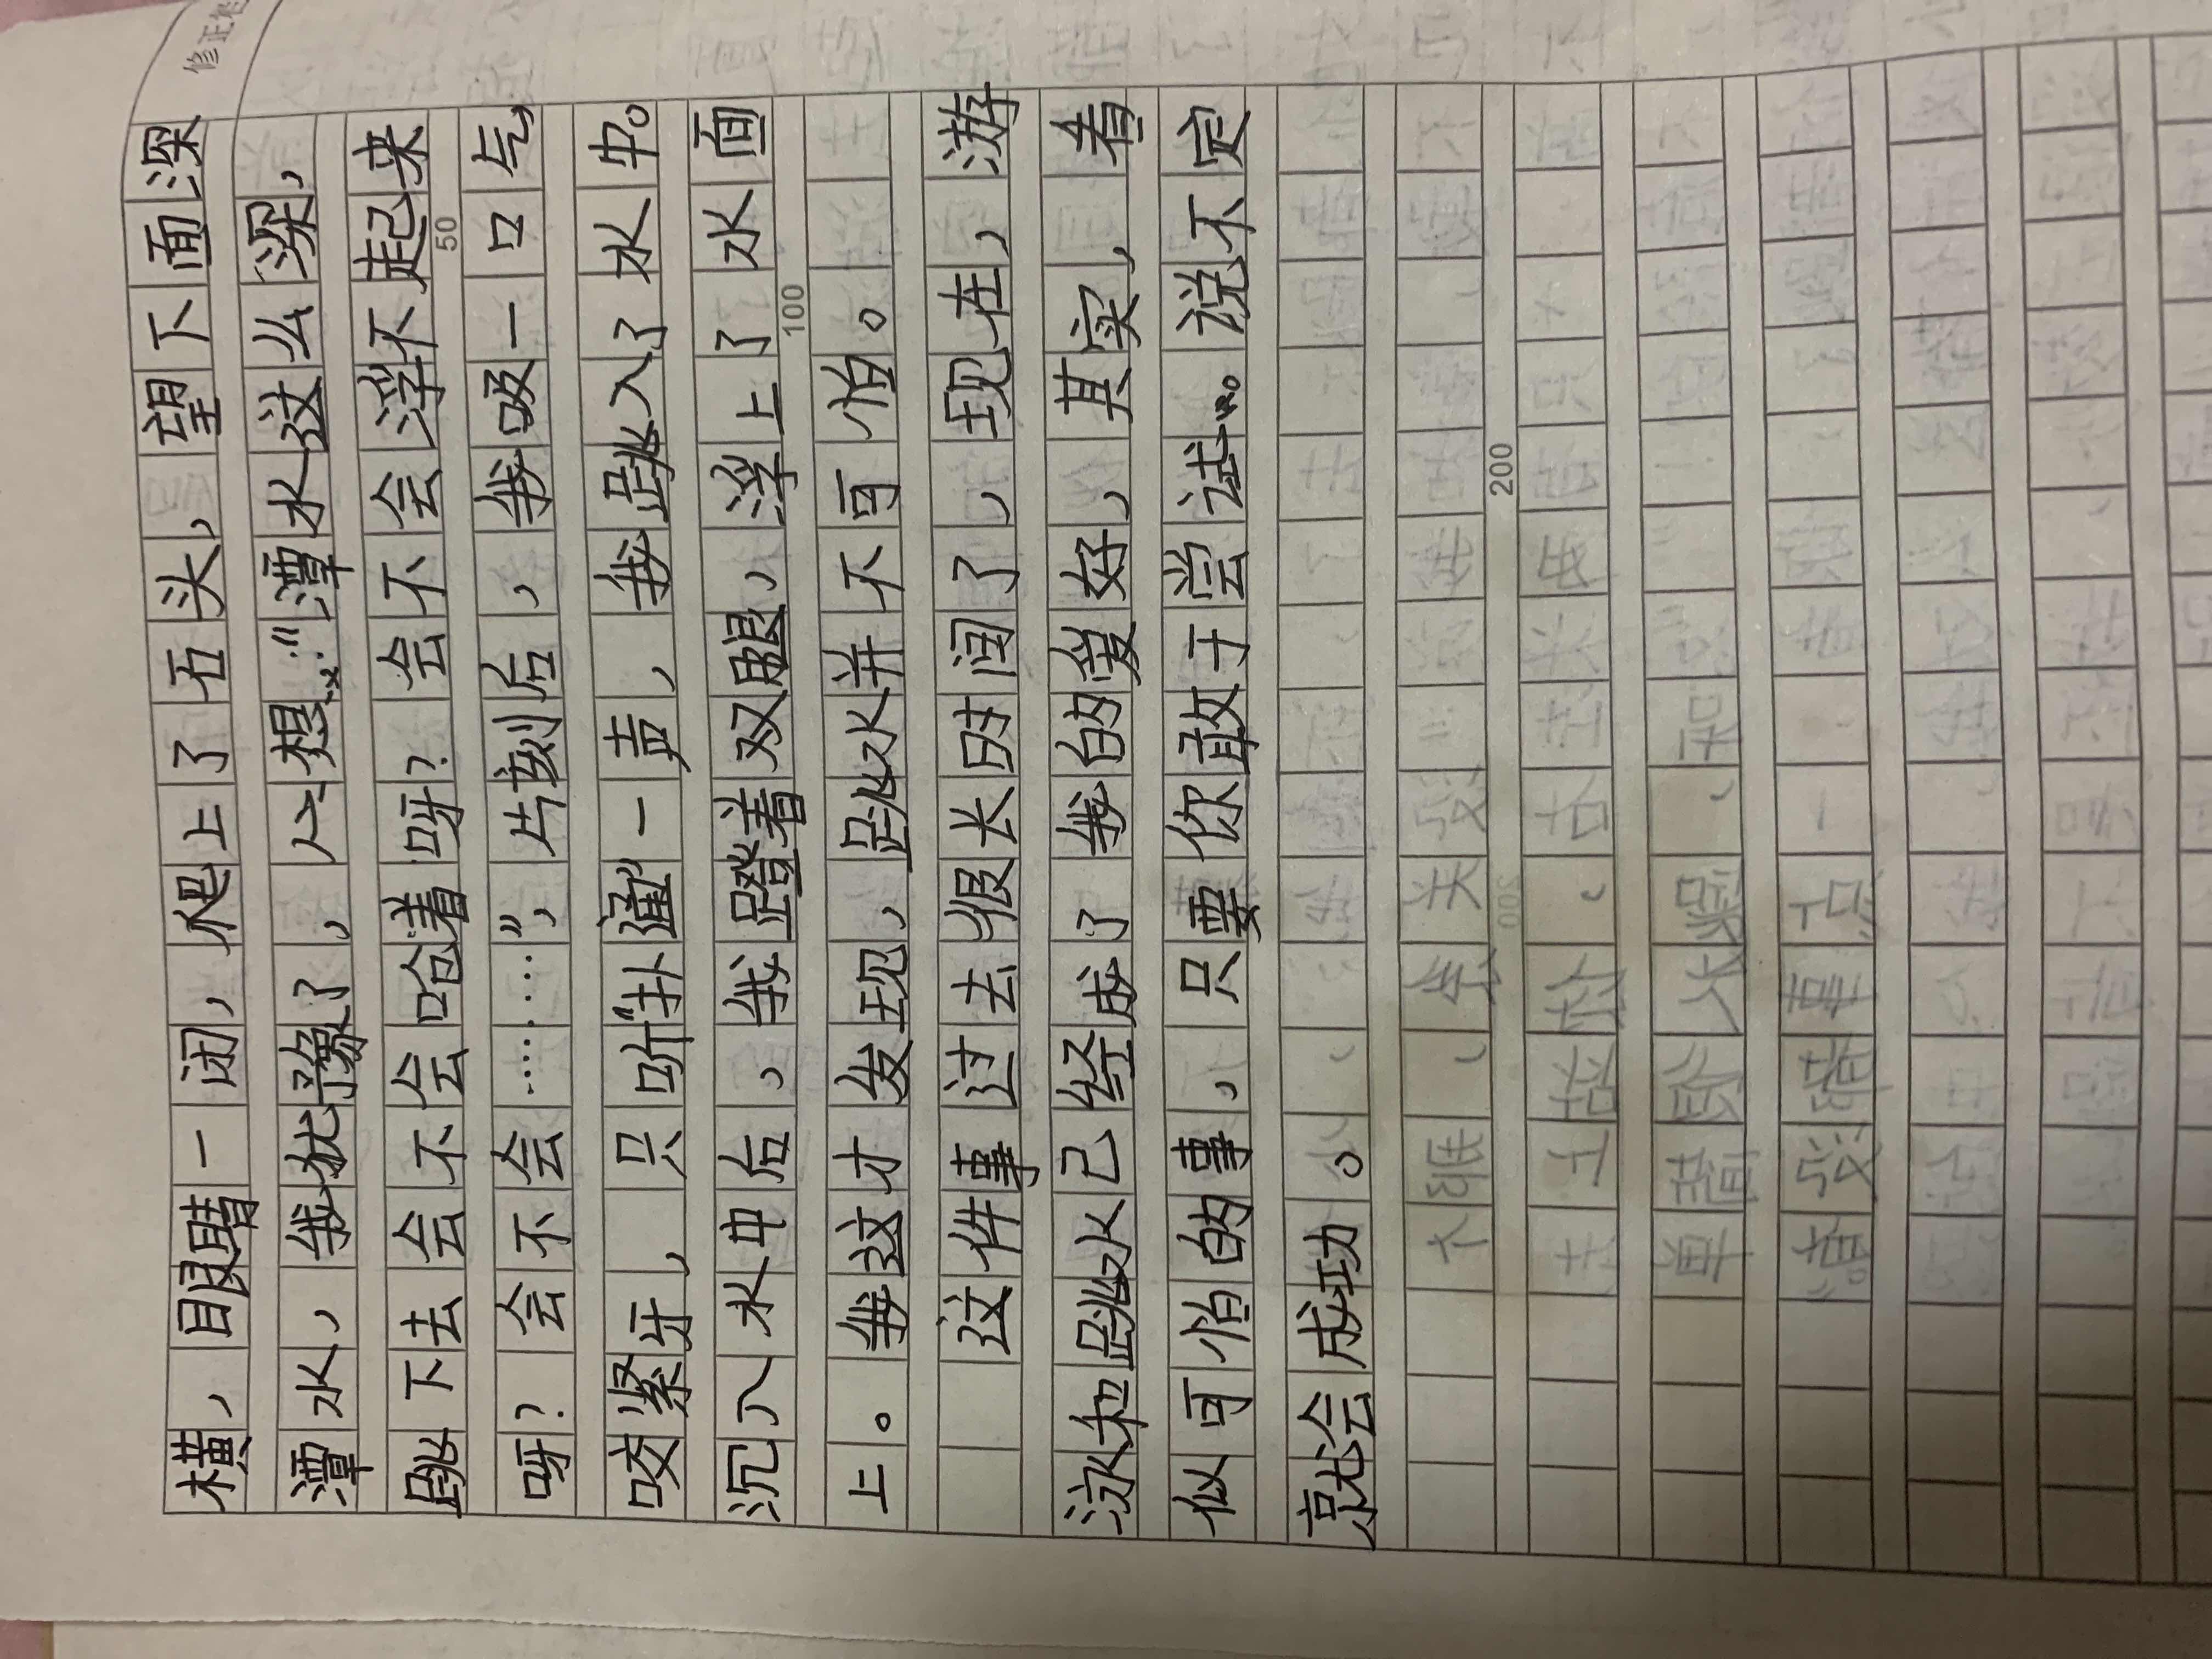 修正
横，眼睛一闭，爬上了石头，望下面深
潭水，我犹豫了，心想：“潭水这么深，
跳下去会不会呛着呀？会不会浮不起来
呀？会不会……”，片刻后，我吸一口气，
咬紧牙，只听“扑通”一声，我跳入了水中。
沉入水中后，我蹬着双腿，浮上了水面
上。我这才发现，跳水并不可怕。
这件事过去很长时间了，现在，游
泳和跳水已经成了我的爱好，其实，看
似可怕的事，只要你敢于尝试。说不定
就会成功。
50
100
200